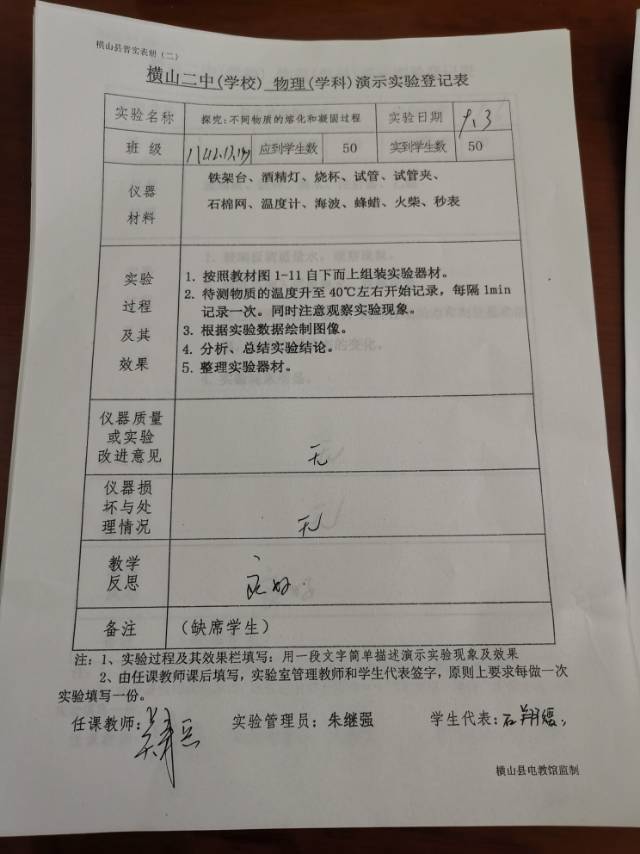 横山县普实表册（二）
横山二中(学校) 物理(学科)演示实验登记表
实验名称 探究:不同物质的熔化和凝固过程 实验日期 9.3
班 级 应到学生数 50 实到学生数 50
仪器
材料
铁架台、酒精灯、烧杯、试管、试管夹、
石棉网、温度计、海波、蜂蜡、火柴、秒表
实验
过程
及其
效果
1. 按照教材图1-11自下而上组装实验器材。
2. 待测物质的温度升至40℃左右开始记录，每隔1min
记录一次。同时注意观察实验现象。
3. 根据实验数据绘制图像。
4. 分析、总结实验结论。
5. 整理实验器材。
仪器质量
或实验
改进意见
无
仪器损
坏与处
理情况
无
教学
反思
良好
备注 （缺席学生）
注：1、实验过程及其效果栏填写：用一段文字简单描述演示实验现象及效果
2、由任课教师课后填写，实验室管理教师和学生代表签字，原则上要求每做一次
实验填写一份。
任课教师: 实验管理员：朱继强 学生代表:
横山县电教馆监制